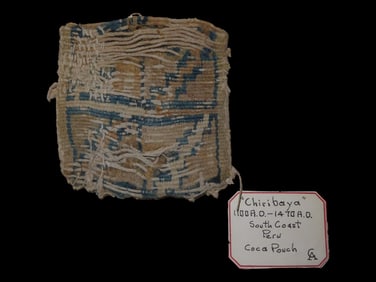 "Chiribaya"
1100 A.D. - 1470 A.D.
South Coast
Peru
Coca Pouch CA